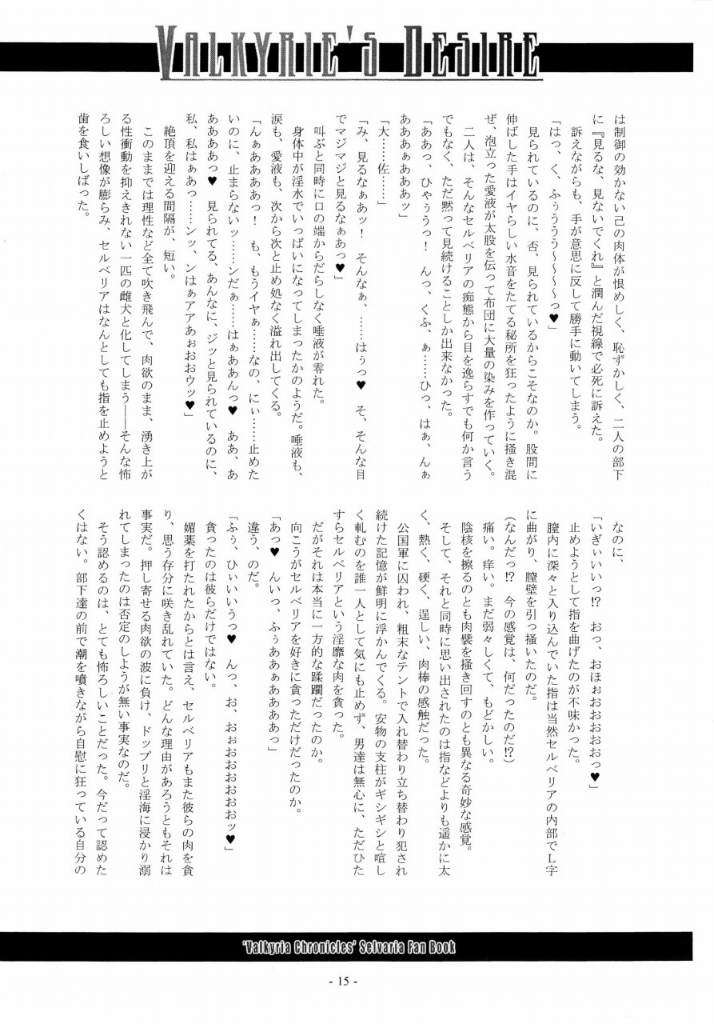 VALKYRIE'S DESIRE
は制御の効かない己の肉体が恨めしく、恥ずかしく、二人の部下
に『見るな、見ないでくれ』と潤んだ視線で必死に訴えた。
訴えながらも、手が意思に反して勝手に動いてしまう。
「はっ、く、ふぅううう〜〜〜〜っ♥」
見られているのに、否、見られているからこそなのか。股間に
伸ばした手はイヤらしい水音をたてる秘所を狂ったように掻き混
ぜ、泡立った愛液が太股を伝って布団に大量の染みを作っていく。
二人は、そんなセルベリアの痴態から目を逸らすでも何か言う
でもなく、ただ黙って見続けることしか出来なかった。
「ああっ、ひゃぅうっ！　んっ、くふ、ぁ……ひっ、はぁ、んぁ
あああぁあああッ」
「大……佐……」
「み、見るなぁあッ！　そんなぁ、……はぅっ♥　そ、そんな目
でマジマジと見るなぁあっ♥」
叫ぶと同時に口の端からだらしなく唾液が零れた。
身体中が淫水でいっぱいになってしまったかのようだ。唾液も、
涙も、愛液も、次から次と止め処なく溢れ出してくる。
「んぁああああっ！　も、もうイヤぁ……なの、にぃ……止めた
いのに、止まらないッ……ンだぁ……はぁああんっ♥　ああ、あ
ああああっ♥　見られてる、あんなに、ジッと見られているのに、
私、私はぁあっ……ンッ、ンはぁアアあぉおおウッ♥」
絶頂を迎える間隔が、短い。
このままでは理性など全て吹き飛んで、肉欲のまま、湧き上が
る性衝動を抑えきれない一匹の雌犬と化してしまう――そんな怖
ろしい想像が膨らみ、セルベリアはなんとしても指を止めようと
歯を食いしばった。
なのに、
「いぎぃいいっ!?　おっ、おほぉおおおおおっ♥」
止めようとして指を曲げたのが不味かった。
膣内に深々と入り込んでいた指は当然セルベリアの内部でL字
に曲がり、膣壁を引っ掻いたのだ。
(なんだっ!?　今の感覚は、何だったのだ!?)
痛い。痒い。まだ弱々しくて、もどかしい。
陰核を擦るのとも肉襞を掻き回すのとも異なる奇妙な感覚。
そして、それと同時に思い出されたのは指などよりも遥かに太
く、熱く、硬く、逞しい、肉棒の感触だった。
公国軍に囚われ、粗末なテントで入れ替わり立ち替わり犯され
続けた記憶が鮮明に浮かんでくる。安物の支柱がギシギシと喧し
く軋むのを誰一人として気にも止めず、男達は無心に、ただひた
すらセルベリアという淫靡な肉を貪った。
だがそれは本当に一方的な蹂躙だったのか。
向こうがセルベリアを好きに貪っただけだったのか。
「あっ♥　んいっ、ふぅああぁああああっ」
違う、のだ。
「ふぅ、ひぃいいうっ♥　んっ、お、おぉおおおおおおッ♥」
貪ったのは彼らだけではない。
媚薬を打たれたからとは言え、セルベリアもまた彼らの肉を貪
り、思う存分に咲き乱れていた。どんな理由があろうともそれは
事実だ。押し寄せる肉欲の波に負け、ドップリと淫海に浸かり溺
れてしまったのは否定のしようが無い事実なのだ。
そう認めるのは、とても怖ろしいことだった。今だって認めた
くはない。部下達の前で潮を噴きながら自慰に狂っている自分の
'Valkyria Chronicles' Selvaria Fan Book
- 15 -